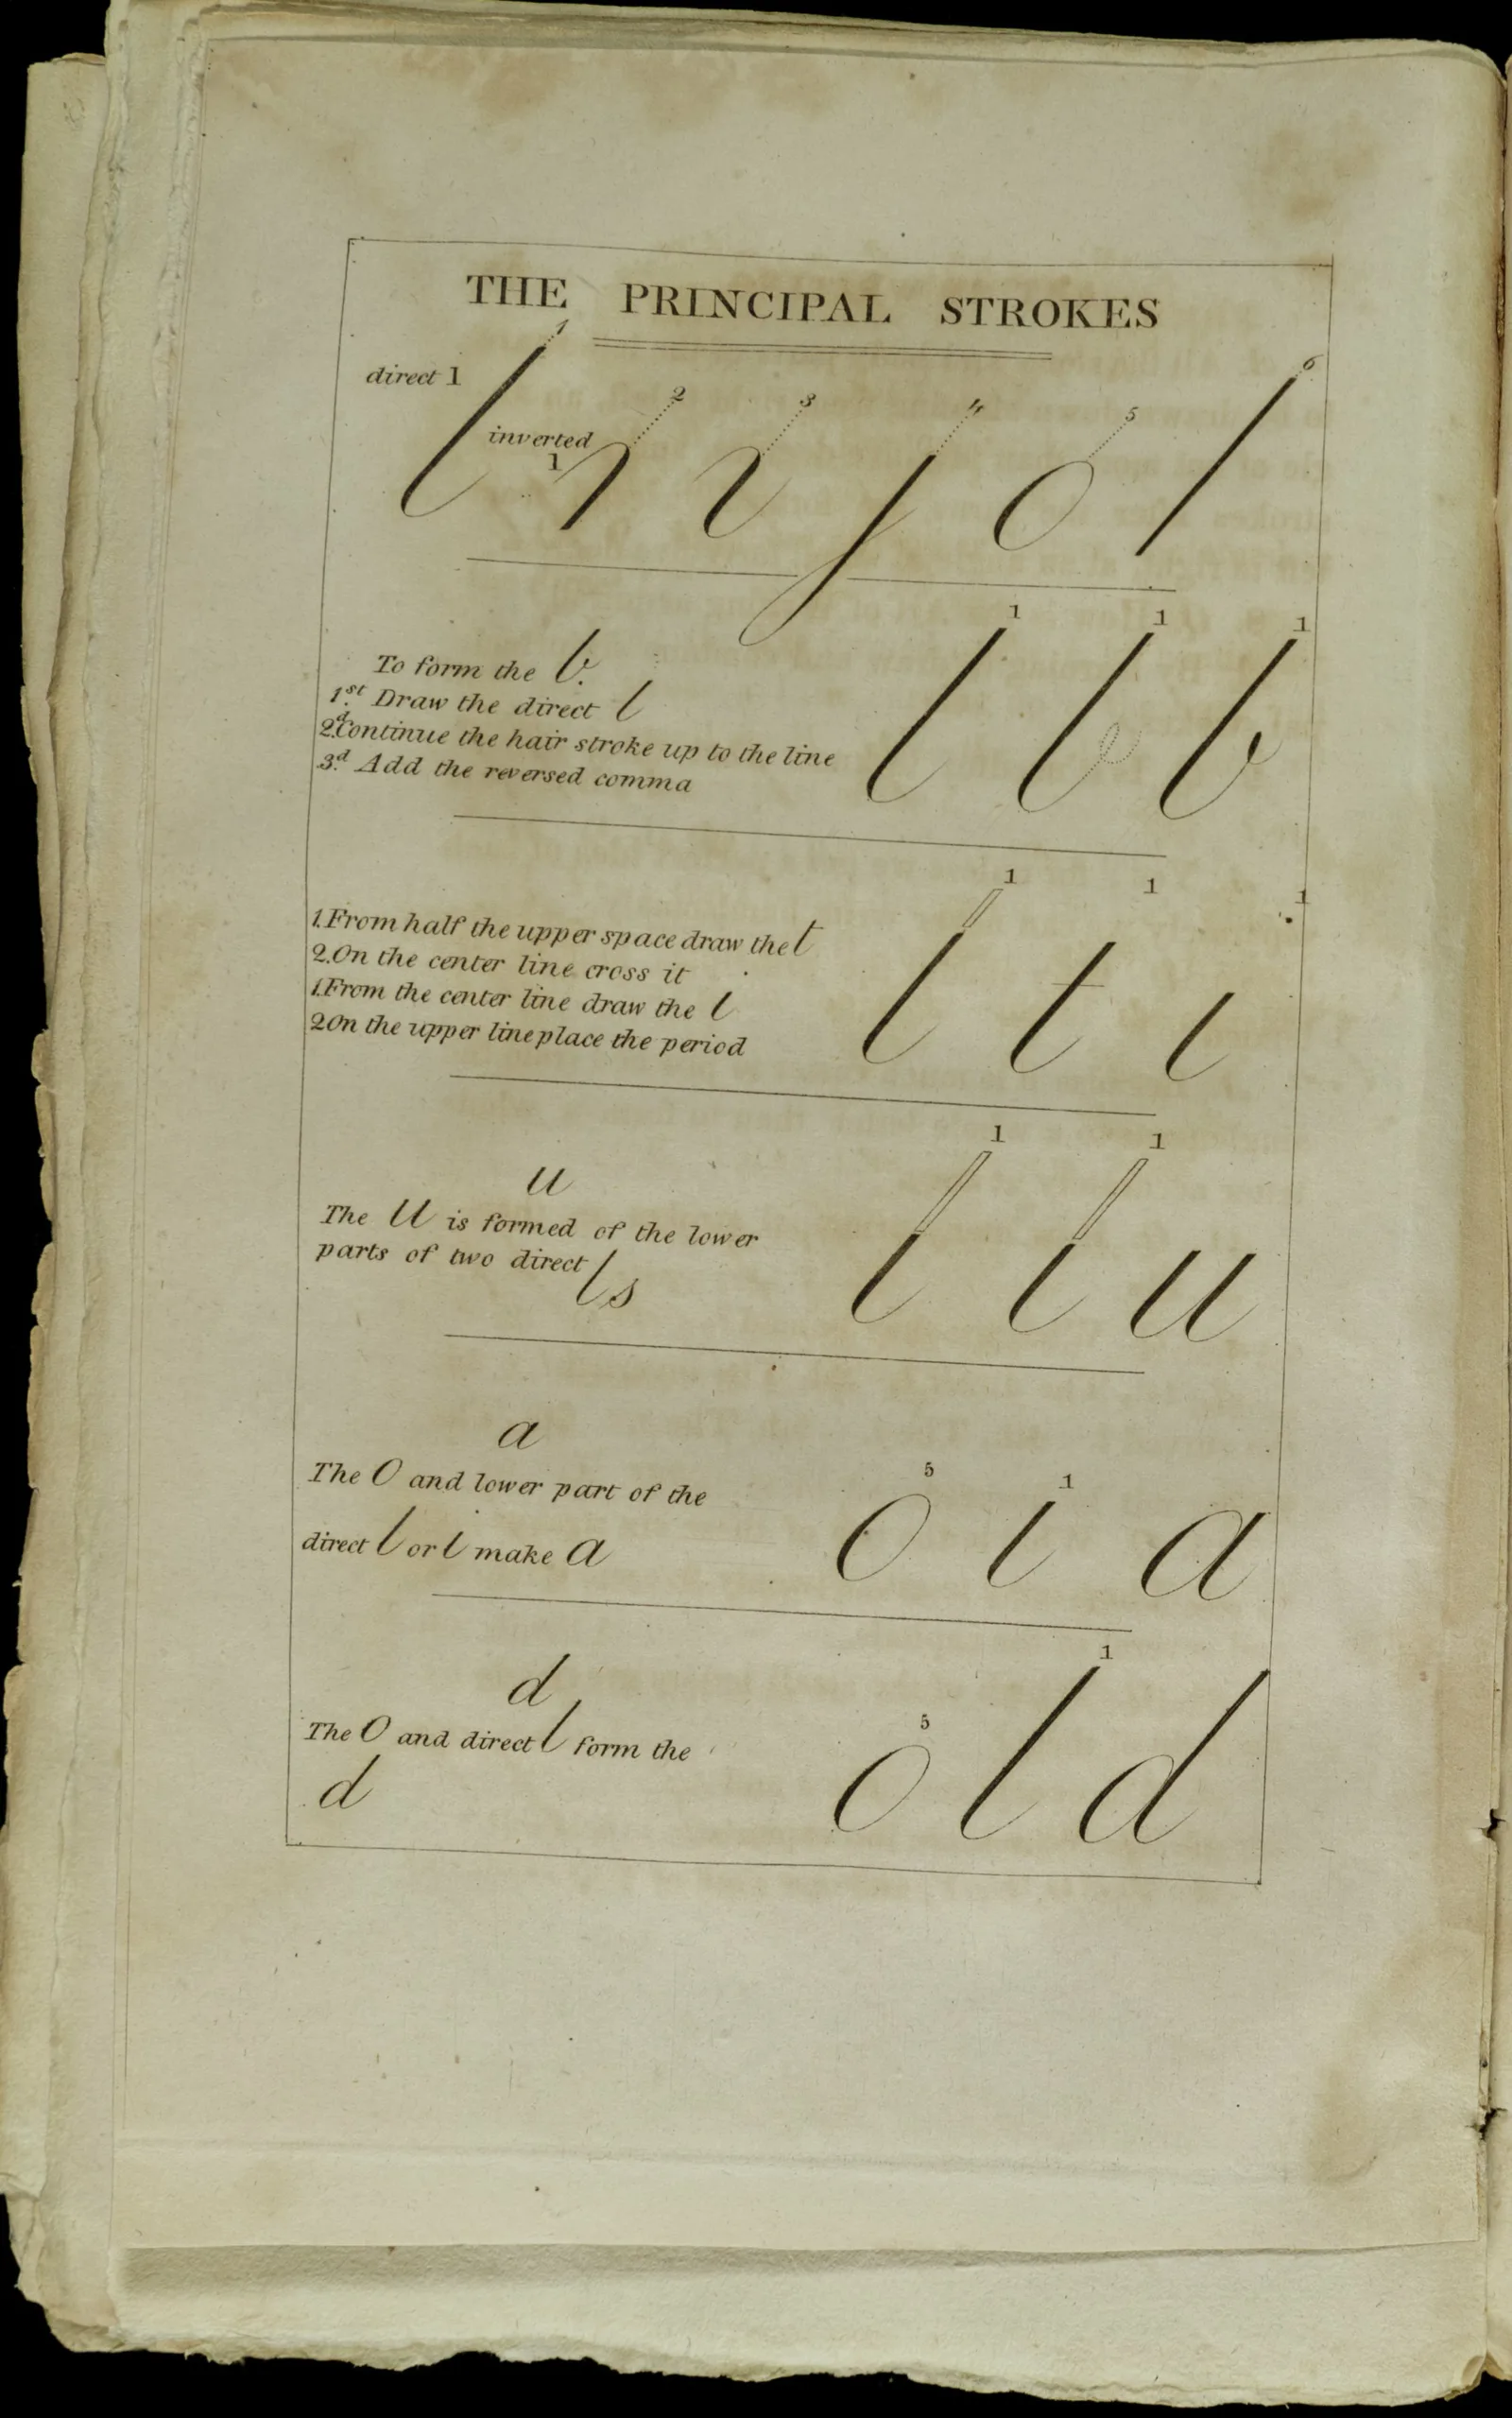 THE PRINCIPAL STROKES
1 2 3 4 5 6
direct 1
inverted
1
l j o
1 1 1
To form the b.
1.st Draw the direct l
2.d Continue the hair stroke up to the line
3.d Add the reversed comma
l b b
1 1 1
1. From half the upper space draw the t
2. On the center line cross it
1. From the center line draw the i
2 On the upper line place the period
l t i
1 1
u
The u is formed of the lower
parts of two direct ls
l l u
a
5 1
The O and lower part of the
direct l or i make a
o i a
d
5 1
The O and direct l form the
d
o l d